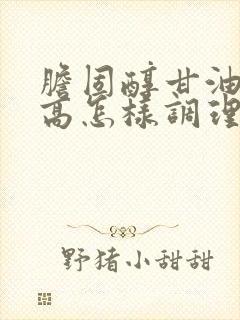 膽固醇甘油
高怎樣調理
野猪小甜甜